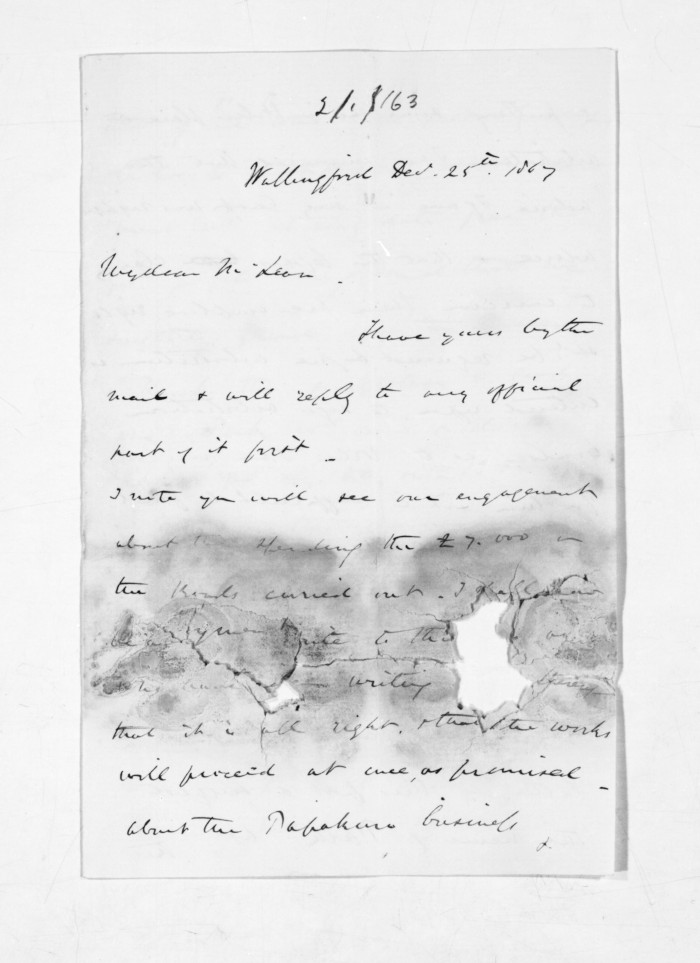 2/1/63
Wallingford Dec. 25th. 1867
My dear McLean.
I have yours by the
mail & will reply to any official
part of it first _
I note you will see our engagement
about the spending the £7.000 on
the Roads carried out. I
write to the
writing
that it is all right, & that the works
will proceed at once, as promised _
about the Tapakuru business